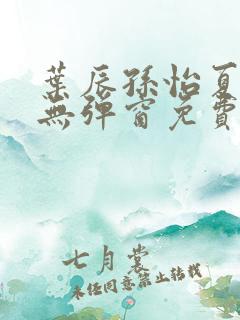 葉辰孫怡夏
無彈窗免費
七月裳
未經同意禁止轉載